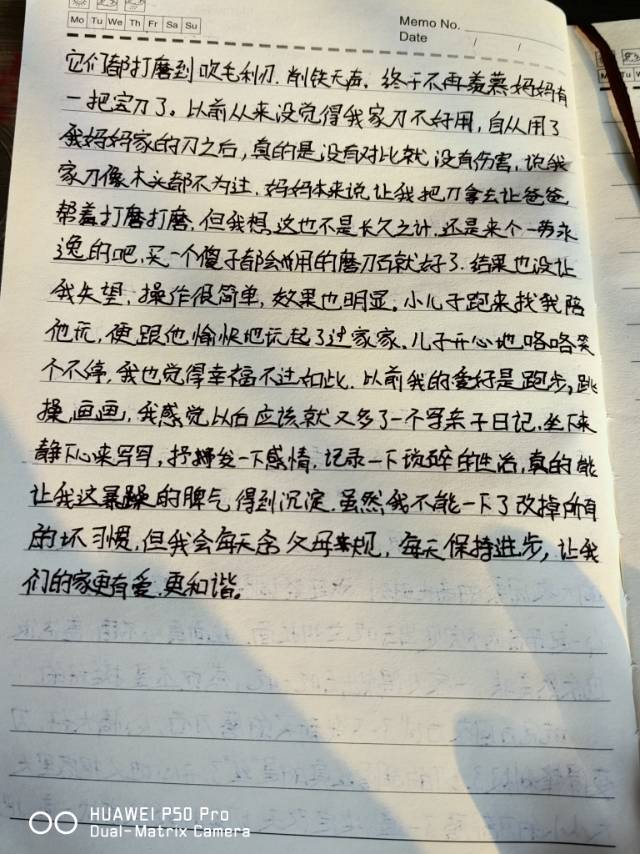 Mo Tu We Th Fr Sa Su
Memo No.
Date / /
它们都打磨到吹毛利刃,削铁无声。终于不再羡慕妈妈有
一把宝刀了。以前从来没觉得我家刀不好用,自从用了
我妈妈家的刀之后,真的是没有对比就没有伤害,说我
家刀像木头都不为过,妈妈本来说让我把刀拿去让爸爸
帮着打磨打磨,但我想,这也不是长久之计,还是来个一劳永
逸的吧,买一个傻子都会用的磨刀石就好了。结果也没让
我失望,操作很简单,效果也明显。小儿子跑来找我陪
他玩,便跟他愉快地玩起了过家家。儿子开心地咯咯笑
个不停,我也觉得幸福不过如此。以前我的爱好是跑步,跳
操,画画,我感觉以后应该就又多了一个写亲子日记,坐下来
静下心来写写,抒发一下感情,记录一下琐碎的生活,真的能
让我这暴躁的脾气得到沉淀。虽然我不能一下了改掉所有
的坏习惯,但我会每天念父母规,每天保持进步,让我
们的家更有爱,更和谐。
HUAWEI P50 Pro
Dual-Matrix Camera